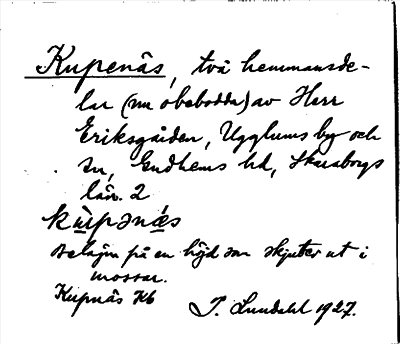 Kupenäs, två hemmansde-
lar (nu obebodda) av Herr
Eriksgården, Ugglums by och
sn, Gudhems hd, Skaraborgs
län. 2
kùpənä̀s
Belägna på en höjd som skjuter ut i
mossar.
Kupnäs Kb
I. Lundahl 1927.